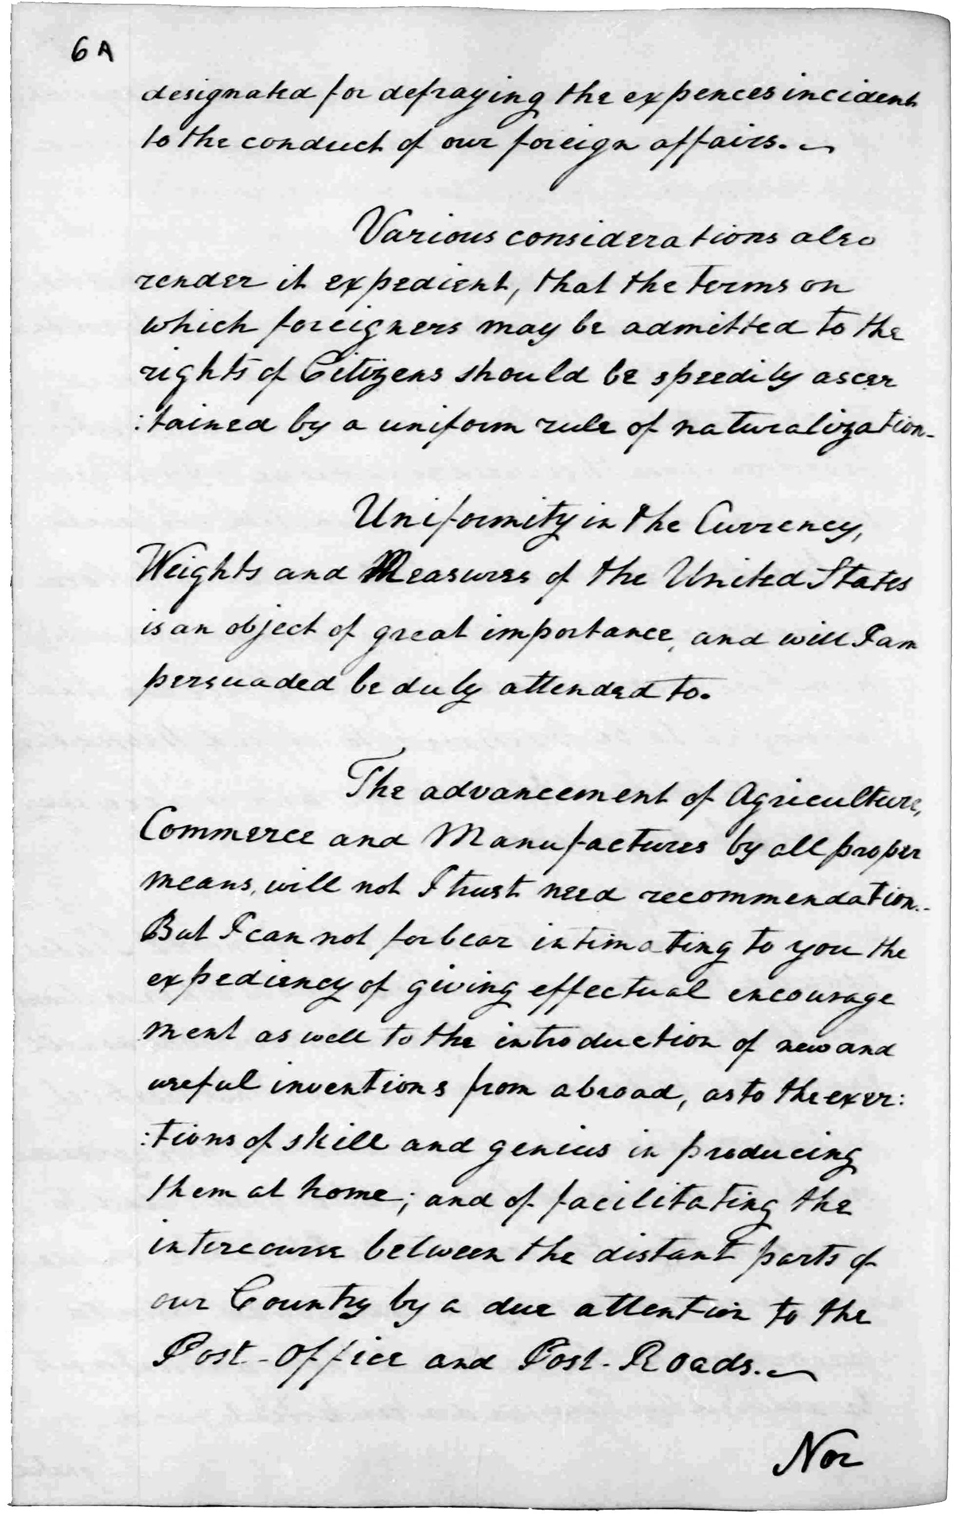 6A
designated for defraying the expences incident
to the conduct of our foreign affairs.
Various considerations also
render it expedient, that the terms on
which foreigners may be admitted to the
rights of Citizens should be speedily ascer
:tained by a uniform rule of naturalization.
Uniformity in the Currency,
Weights and Measures of the United States
is an object of great importance, and will I am
persuaded be duly attended to.
The advancement of Agriculture,
Commerce and Manufactures by all proper
means, will not I trust need recommendation.
But I cannot forbear intimating to you the
expediency of giving effectual encourage
ment as well to the introduction of new and
useful inventions from abroad, as to the exer:
:tions of skill and genius in producing
them at home; and of facilitating the
intercourse between the distant parts of
our Country by a due attention to the
Post-Office and Post-Roads.
Nor